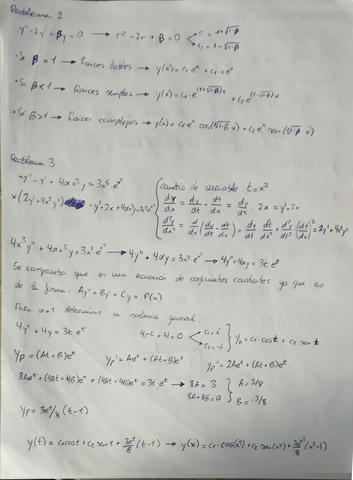 Problema 2
y''-2y'+βy=0 → r²-2r+β=0 r₁=1+√1-β
r₂=1-√1-β
• Si β=1 → Raíces dobles → y(x)=c₁eˣ+c₂xeˣ
• Si β<1 → Raíces simples → y(x)=c₁e^(1+√1-β)x + c₂e^(1-√1-β)x
• Si β>1 → Raíces complejas → y(x)=c₁eˣcos(√1-β x)+c₂eˣsen(√1-β x)
Problema 3
xy''-y'+4αx³y=3x⁵e^x²
cambio de variable t=x²
x(2y'+4x²y'') -y'·2x+4αx³y=3x⁵e^x²
dy/dx = dy/dt · dt/dx = dy/dt · 2x = y'·2x
d²y/dx² = d/dx(dy/dt · dt/dx) = dy/dt · d²t/dx² + d²y/dt²(dt/dx)² = 2y'+4x²y''
4x³y''+4αx³y=3x⁵e^x² → 4y''+4αy=3x²e^x² → 4y''+4αy=3te^t
Se comprueba que es una ecuación de coeficientes constantes ya que es
de la forma: Ay''+By'+Cy=P(x)
Para α=1 determinar su solución general:
4y''+4y=3te^t 4r²+4=0 r₁=i r₂=-i } y_h=c₁cost+c₂sent
y_p=(At+B)e^t y_p'=Ae^t+(At+B)e^t y_p''=2Ae^t+(At+B)e^t
8Ae^t+(4At+4B)e^t+(4At+4B)e^t=3te^t → 8A=3 A=3/8
8A+8B=0 B=-3/8
y_p=3e^t/8(t-1)
y(t)=c₁cost+c₂sent+3e^t/8(t-1) → y(x)=c₁·cos(x²)+c₂sen(x²)+3e^x²/8(x²-1)